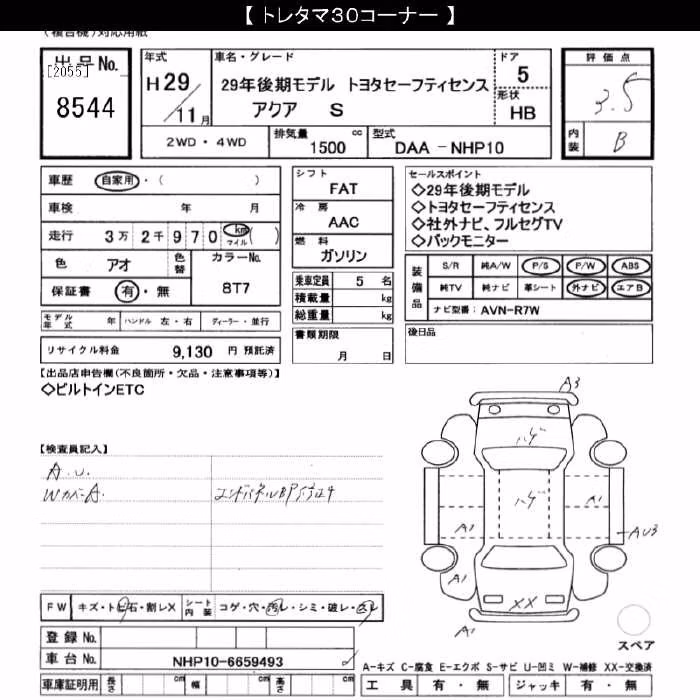 【 トレタマ30コーナー 】
(複合機)対応用紙
出品No.
[2055]
8544
年式 H29/11月
車名・グレード
29年後期モデル トヨタセーフティセンス
アクア S
ドア 5
形状 HB
2WD・4WD
排気量 1500 cc
型式 DAA-NHP10
評価点
3.5
内装 B
車歴 自家用・( )
車検 年 月
走行 3万 2千 9 7 0 km マイル ( )
色 アオ
色替
カラーNo.
8T7
保証書 有・無
モデル年式 年 ハンドル 左・右 ディーラー・並行
リサイクル料金 9,130 円 預託済
シフト
FAT
冷房
AAC
燃料
ガソリン
乗車定員 5 名
積載量 kg
総重量 kg
書類期限
月 日
セールスポイント
◇29年後期モデル
◇トヨタセーフティセンス
◇社外ナビ、フルセグTV
◇バックモニター
装備品
S/R 純A/W P/S P/W ABS
純TV 純ナビ 革シート 外ナビ エアB
ナビ型番: AVN-R7W
後日品
【出品店申告欄(不良箇所・欠品・注意事項等)】
◇ビルトインETC
【検査員記入】
A.U.
Wカバー A.
エンドパネルBP修正キ
A3
ハゲ
ハゲ
A1
A1
AU3
A1
XX
A1
スペア
FW キズ・トビ石・割レX
シート内装 コゲ・穴・汚レ・シミ・破レ・スレ
登録No.
車台No. NHP10-6659493
車庫証明用 長さ cm 幅 cm 高さ cm
A-キズ C-腐食 E-エクボ S-サビ U-凹ミ W-補修 XX-交換済
工具 有・無 ジャッキ 有・無